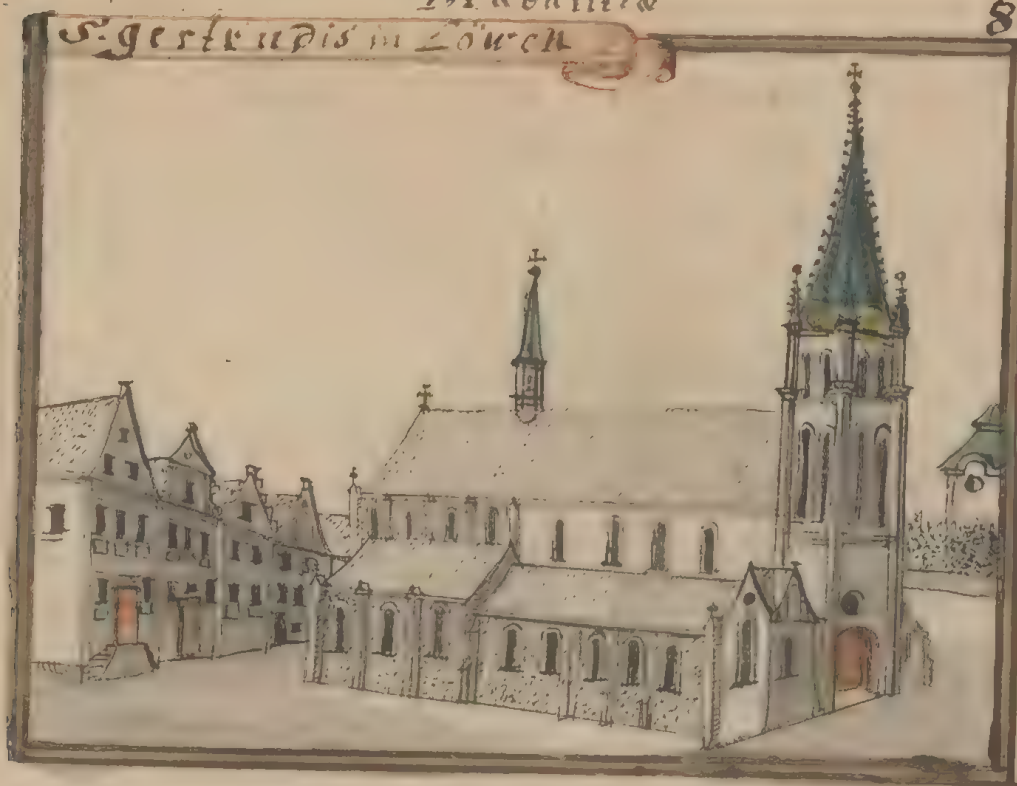 8
S. gertrudis in Löwen